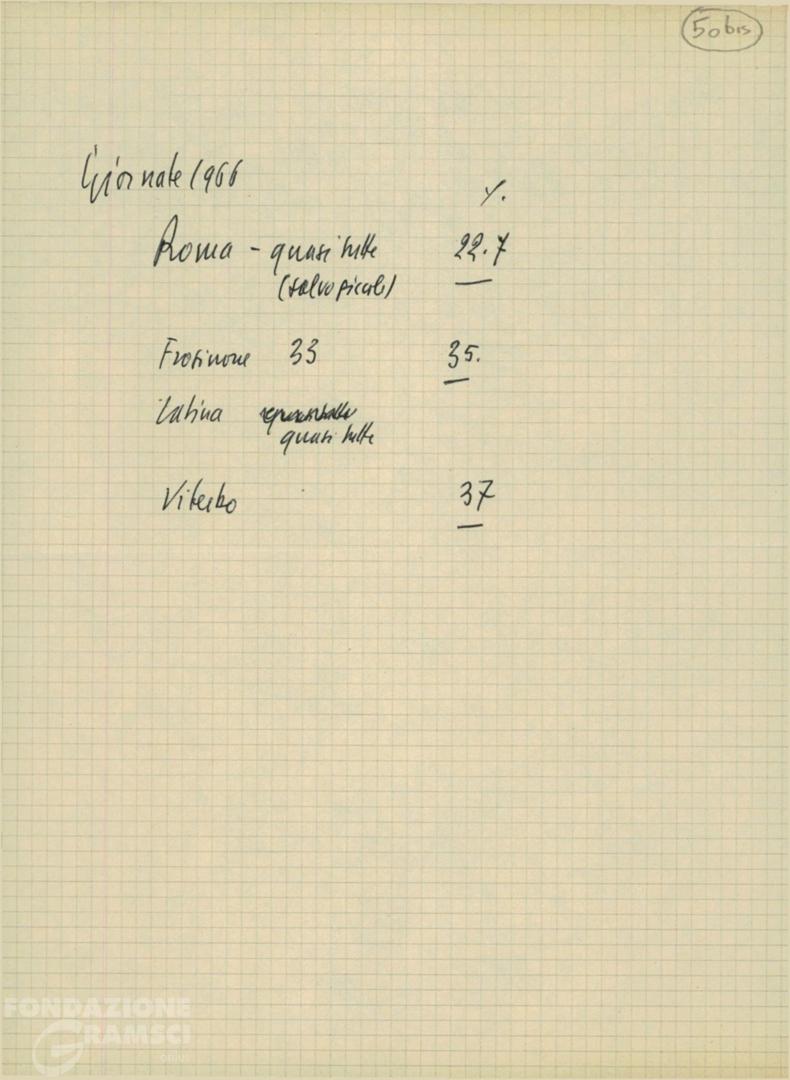 50 bis
Giornate 1966
%.
Roma - quasi tutte 22.7
(salvo piccole)
Frosinone 33 35.
Latina
quasi tutte
Viterbo 37
FONDAZIONE
GRAMSCI
onlus